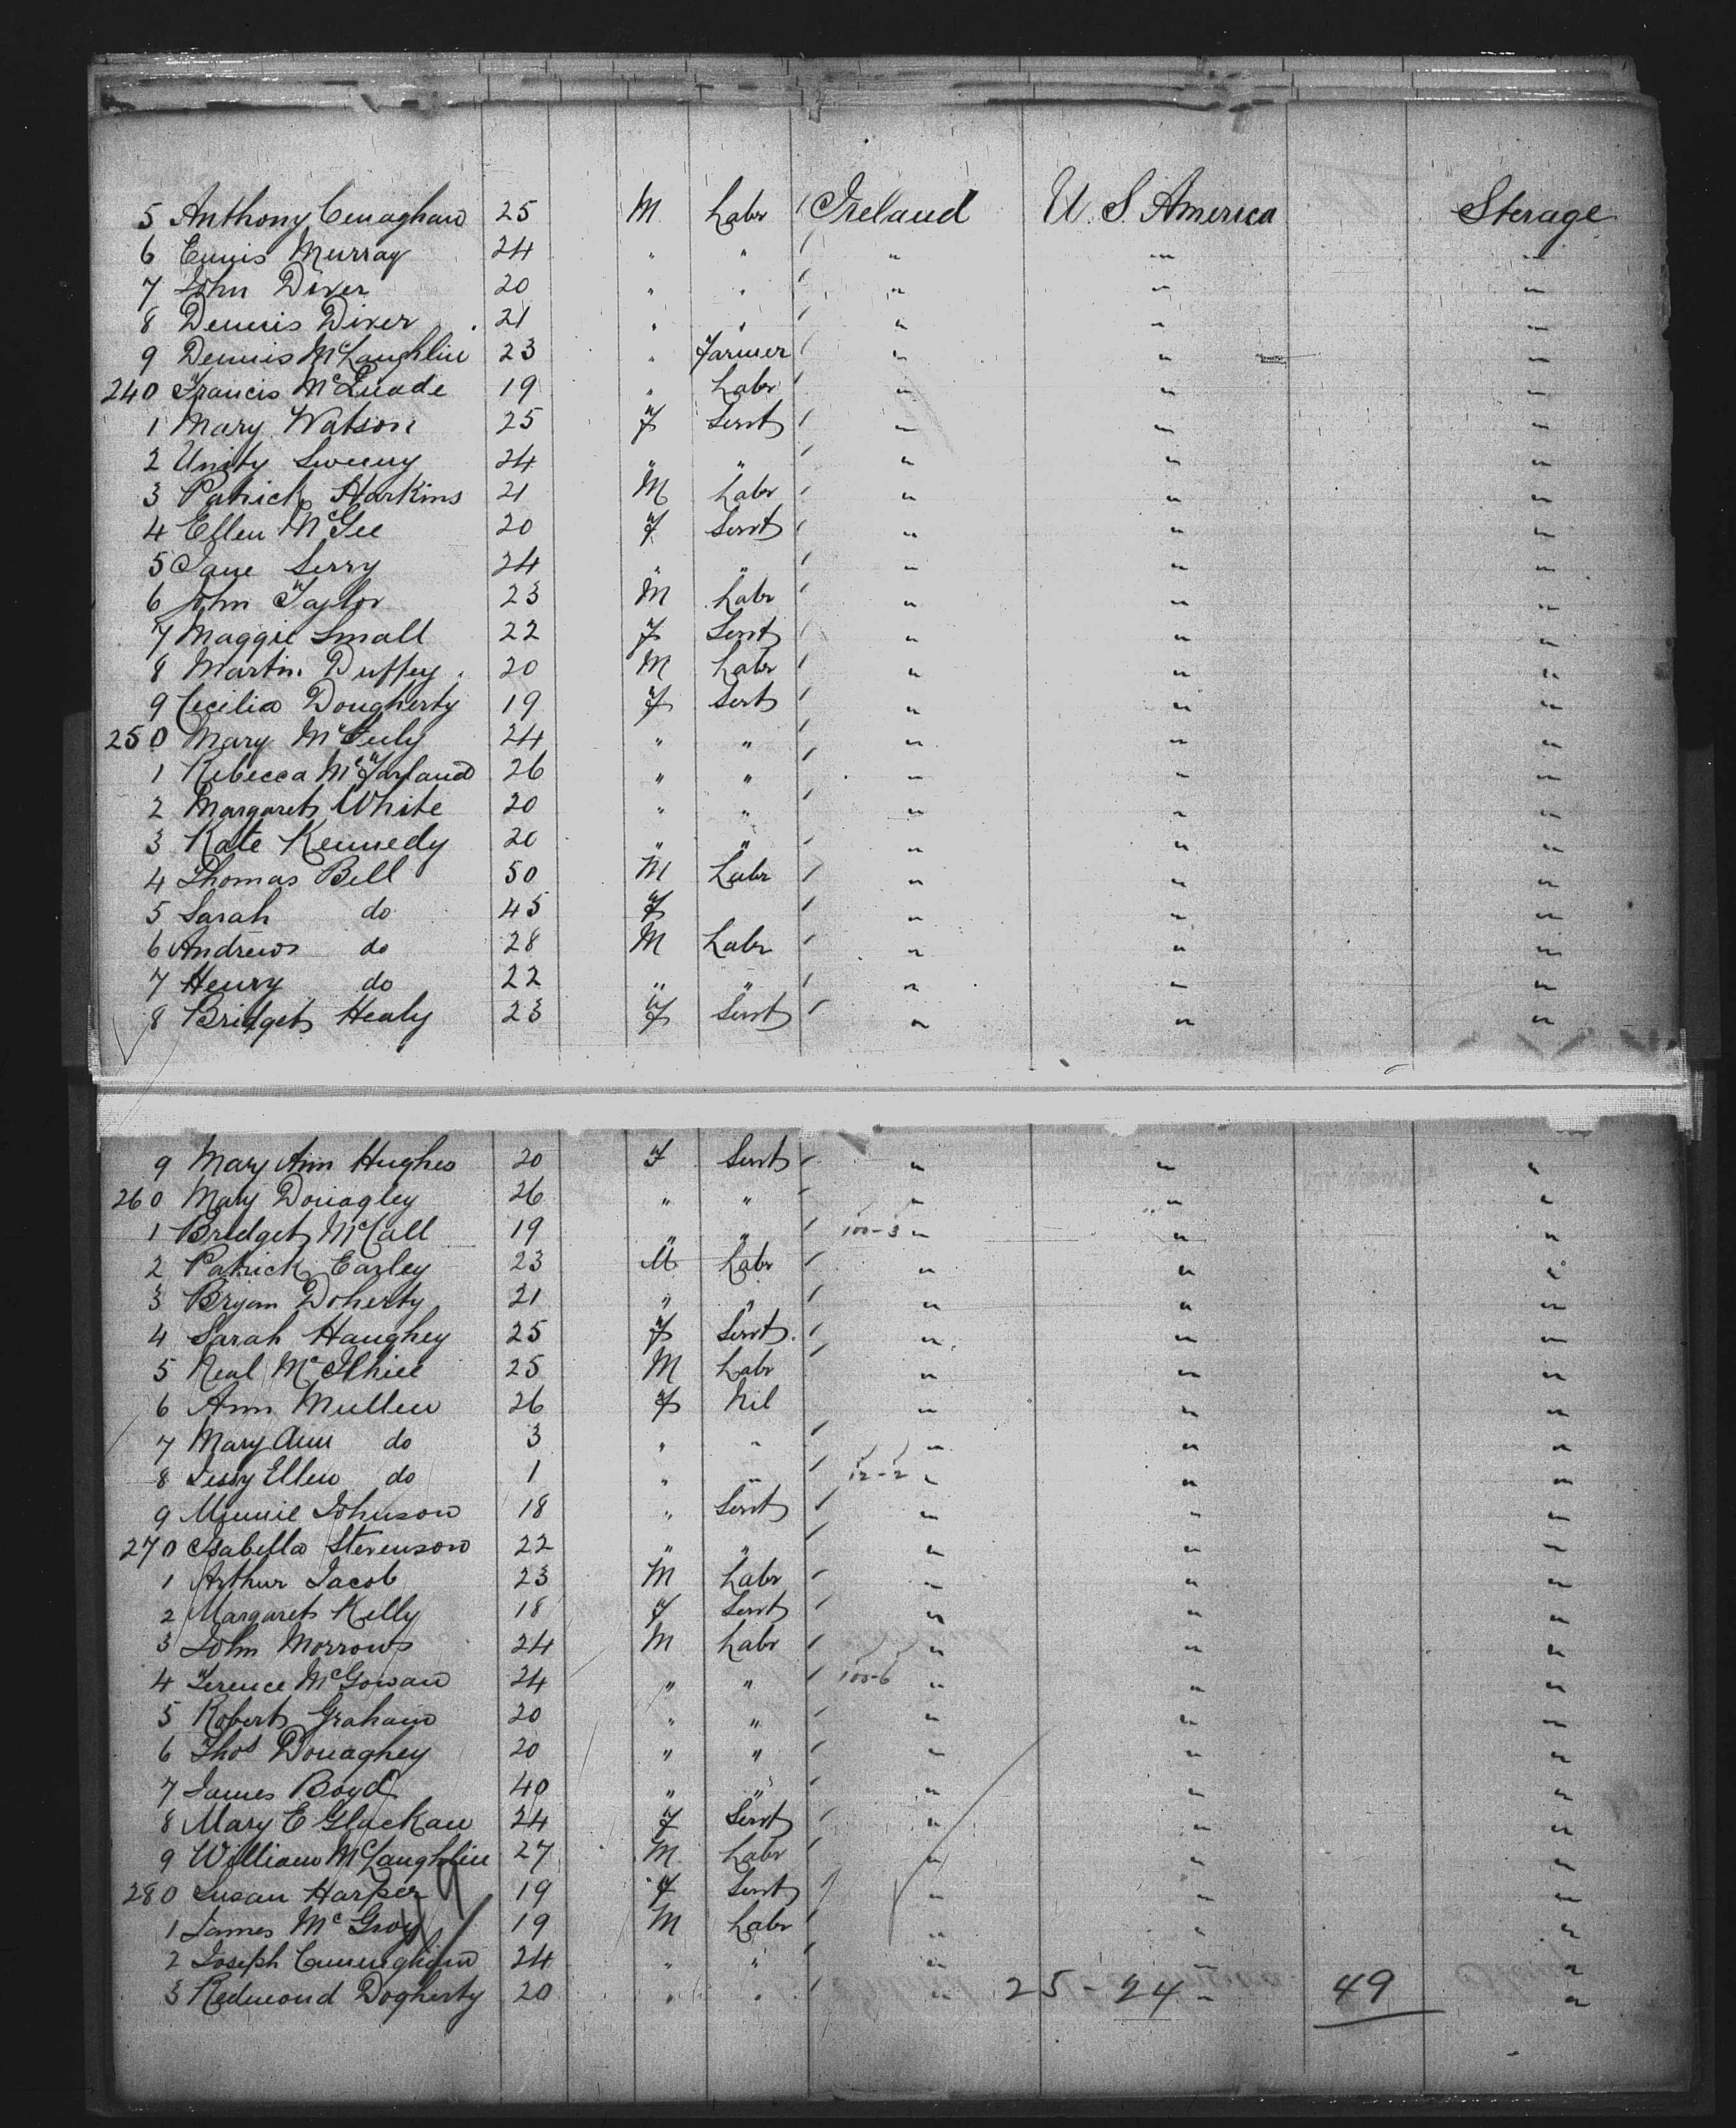 5 Anthony Cenaghan 25 M Labr / Ireland U. S. America Sterage
6 Ennis Murray 24 " " / " " "
7 John Diver 20 " " / " " "
8 Dennis Diver 21 " " / " " "
9 Dennis McLaughlin 23 " Farmer / " " "
240 Francis McQuade 19 " Labr / " " "
1 Mary Watson 25 F Servt / " " "
2 Unity Sweeny 24 " " / " " "
3 Patrick Harkins 21 M Labr / " " "
4 Ellen McGee 20 F Servt / " " "
5 Jane Serry 24 " " / " " "
6 John Taylor 23 M Labr / " " "
7 Maggie Small 22 F Servt / " " "
8 Martin Duffey 20 M Labr / " " "
9 Cecilia Dougherty 19 F Sert / " " "
250 Mary 24 " " / " " "
1 Rebecca McFarland 26 " " / " " "
2 Margaret White 20 " " / " " "
3 Kate Kennedy 20 " " / " " "
4 Thomas Bell 50 M Labr / " " "
5 Sarah do 45 F / " " "
6 Andrew do 28 M Labr / " " "
7 Henry do 22 " " / " " "
8 Bridget Healy 23 F Servt / " " "
9 Mary Ann Hughes 20 F Servt / " " "
260 Mary Donagley 26 " " / " " "
1 Bridget McCall 19 " " / 100-3 " " "
2 Patrick Earley 23 M Labr / " " "
3 Bryan Doherty 21 " " / " " "
4 Sarah Haughey 25 F Servt / " " "
5 Neal McIlhiee 25 M Labr / " " "
6 Ann Mullen 26 F Nil " " "
7 Mary Ann do 3 " " / " " "
8 Ellen do 1 " " / 12-2 " " "
9 Minnie Johnson 18 " Servt / " " "
270 Isabella Stevenson 22 " " / " " "
1 Arthur Jacob 23 M Labr / " " "
2 Margaret Kelly 18 F Servt / " " "
3 John Morrow 24 M Labr / " " "
4 Terence McGowan 24 " " / 100-6 " " "
5 Robert Graham 20 " " / " " "
6 Thos Donaghey 20 " " / " " "
7 James Boyd 40 " " / " " "
8 Mary E Glackan 24 F Servt / " " "
9 William McLaughlin 27 M Labr / " " "
280 Susan Harper 19 F Servt / " " "
1 James McGroy 19 M Labr / " " "
2 Joseph Cunningham 24 " " / " " "
3 Redmond Dogherty 20 " " / " 25-24 " 49 "